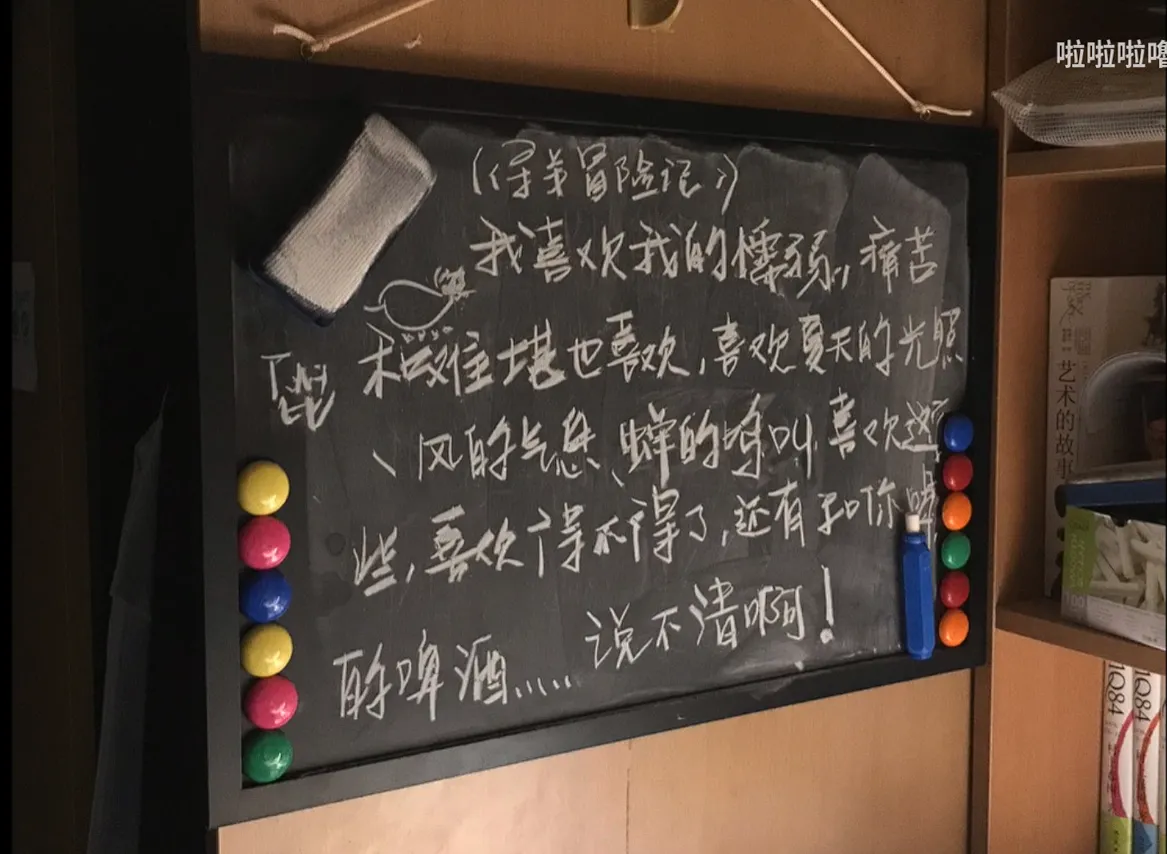 啦啦啦噜
冒险记》
我喜欢我的懦弱,痛苦
和难堪也喜欢,喜欢夏天的光照
、风的气息、蝉的鸣叫,喜欢这
些,喜欢得不得了,还有和你喝
的啤酒..... 说不清啊!
艺术的故事
100
1Q84
1Q84